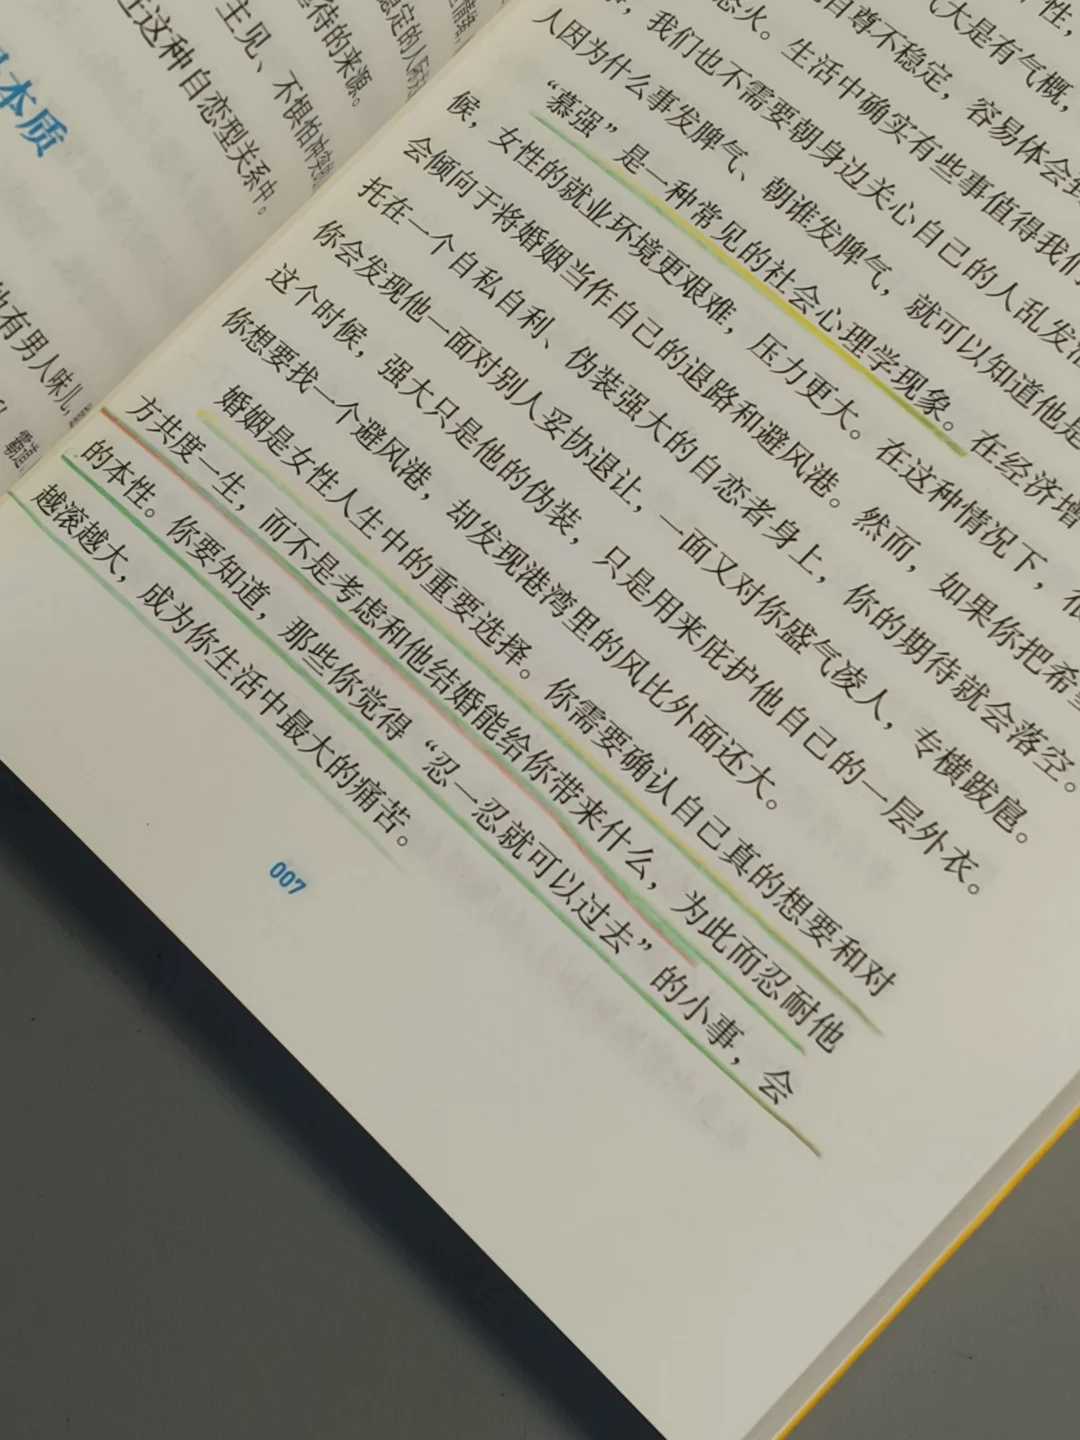 本质
主见、不惧怕冲突
在这种自恋型关系中。
待的来源。
稳定的人
他有男人味儿，
气大是有气概，
怒火。生活中确实有些事值得我们
自尊不稳定，容易体会到
，我们也不需要朝身边关心自己的人乱发
人因为什么事发脾气、朝谁发脾气，就可以知道他是
“慕强”是一种常见的社会心理学现象。在经济增
候，女性的就业环境更艰难，压力更大。在这种情况下，很
会倾向于将婚姻当作自己的退路和避风港。然而，如果你把希望
托在一个自私自利、伪装强大的自恋者身上，你的期待就会落空。
你会发现他一面对别人妥协退让，一面又对你盛气凌人，专横跋扈。
这个时候，强大只是他的伪装，只是用来庇护他自己的一层外衣。
你想要找一个避风港，却发现港湾里的风比外面还大。
婚姻是女性人生中的重要选择。你需要确认自己真的想要和对
方共度一生，而不是考虑和他结婚能给你带来什么，为此而忍耐他
的本性。你要知道，那些你觉得“忍一忍就可以过去”的小事，会
越滚越大，成为你生活中最大的痛苦。
007